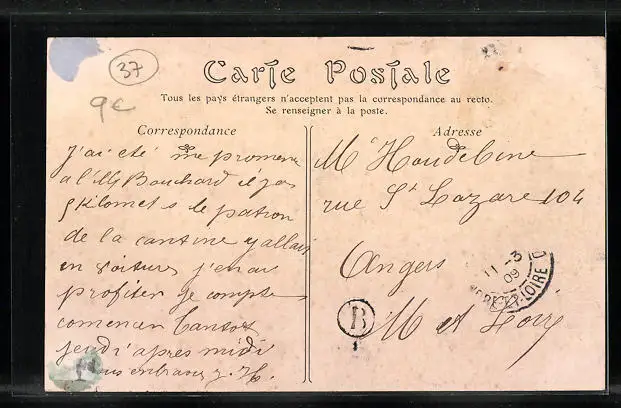 37
9e
Carte Postale
Tous les pays étrangers n'acceptent pas la correspondance au recto.
Se renseigner à la poste.
Correspondance
Adresse
j'ai eté me promener
a l'Ile Bouchard
9 Kilomets le patron
de la cantine y allait
en voiture j'en ai
profiter je compte
jeudi après midi
J. H.
Mr Houdebine
rue St Lazare 104
Angers
M et Loire
11 -3
09
ET-LOIRE
B